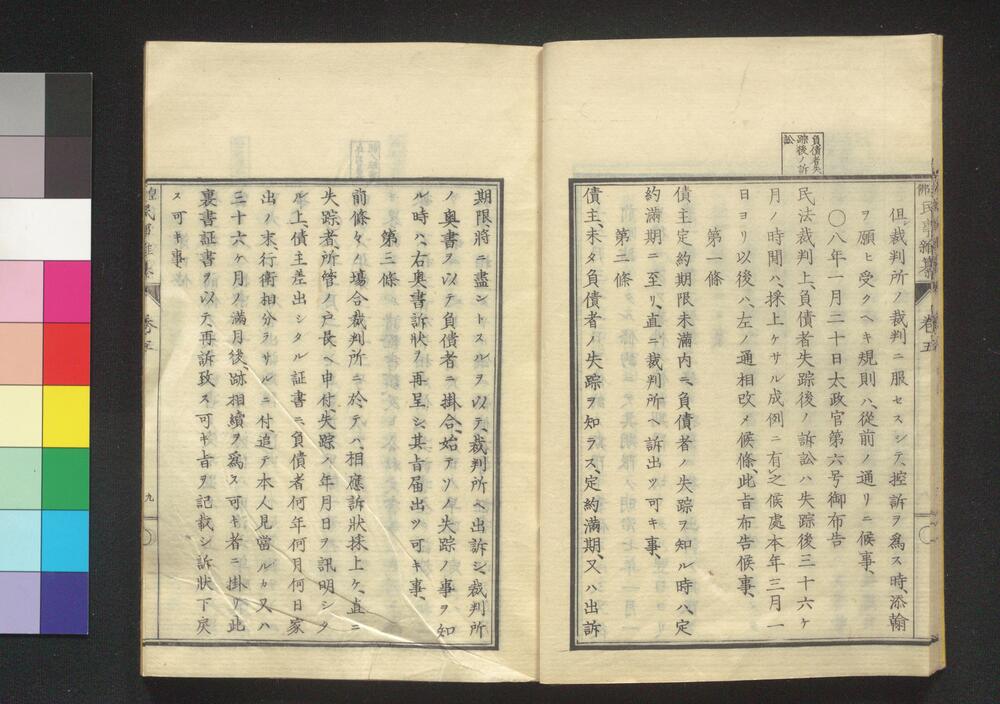 負債者失
踪後ノ訴
訟
民事
卷五
但、裁判所ノ裁判ニ服セスシテ、控訴ヲ爲ス時、添翰
ヲ願ヒ受クヘキ規則ハ、從前ノ通リニ候事、
〇八年一月二十日太政官第六号御布告
民法裁判上、負債者失踪後ノ訴訟ハ失踪後三十六ケ
月ノ時間ハ、採上ケサル成例ニ有之候處本年三月一
日ヨリ以後ハ、左ノ通相改メ候條、此旨布告候事、
第一條
債主、定約期限未滿内ニ、負債者ノ失踪ヲ知ル時ハ、定
約滿期ニ至リ、直ニ裁判所ヘ訴出ツ可キ事、
第二條
債主、未タ負債者ノ失踪ヲ知ラス、定約滿期、又ハ出訴
期限、將ニ盡ントスルヲ以テ、裁判所ヘ出訴シ、裁判所
ノ奥書ヲ以テ負債者ニ掛合、始テソノ失踪ノ事ヲ知
ル時ハ、右奥書訴狀ヲ再呈シ、其旨届出ツ可キ事、
第三條
前條々ノ塲合裁判所ニ於テハ、相應訴狀採上ケ、直ニ
失踪者、所管ノ戸長ヘ申付、失踪ノ年月日ヲ訊明シタ
ル上、債主差出シタル証書ニ負債者何年何月何日家
出ノ末、行衛相分ラサルニ付、追テ本人見當ルカ又ハ
三十六ケ月ノ滿月後、跡相續ヲ爲ス可キ者ニ掛リ、此
裏書証書ヲ以テ再訴致ス可キ旨ヲ記載シ訴狀下戾
ス可キ事、
九